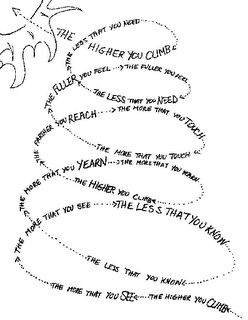 THE
THE LESS THAT YOU NEED
HIGHER YOU CLIMB
THE FULLER YOU FEEL THE FULLER YOU FEEL
THE LESS THAT YOU NEED
THE FARTHER YOU REACH THE MORE THAT YOU TOUCH
THE MORE THAT YOU TOUCH
THE MORE THAT YOU YEARN THE MORE THAT YOU YEARN
THE HIGHER YOU CLIMB
THE MORE THAT YOU SEE THE LESS THAT YOU KNOW
THE LESS THAT YOU KNOW
THE MORE THAT YOU SEE THE HIGHER YOU CLIMB